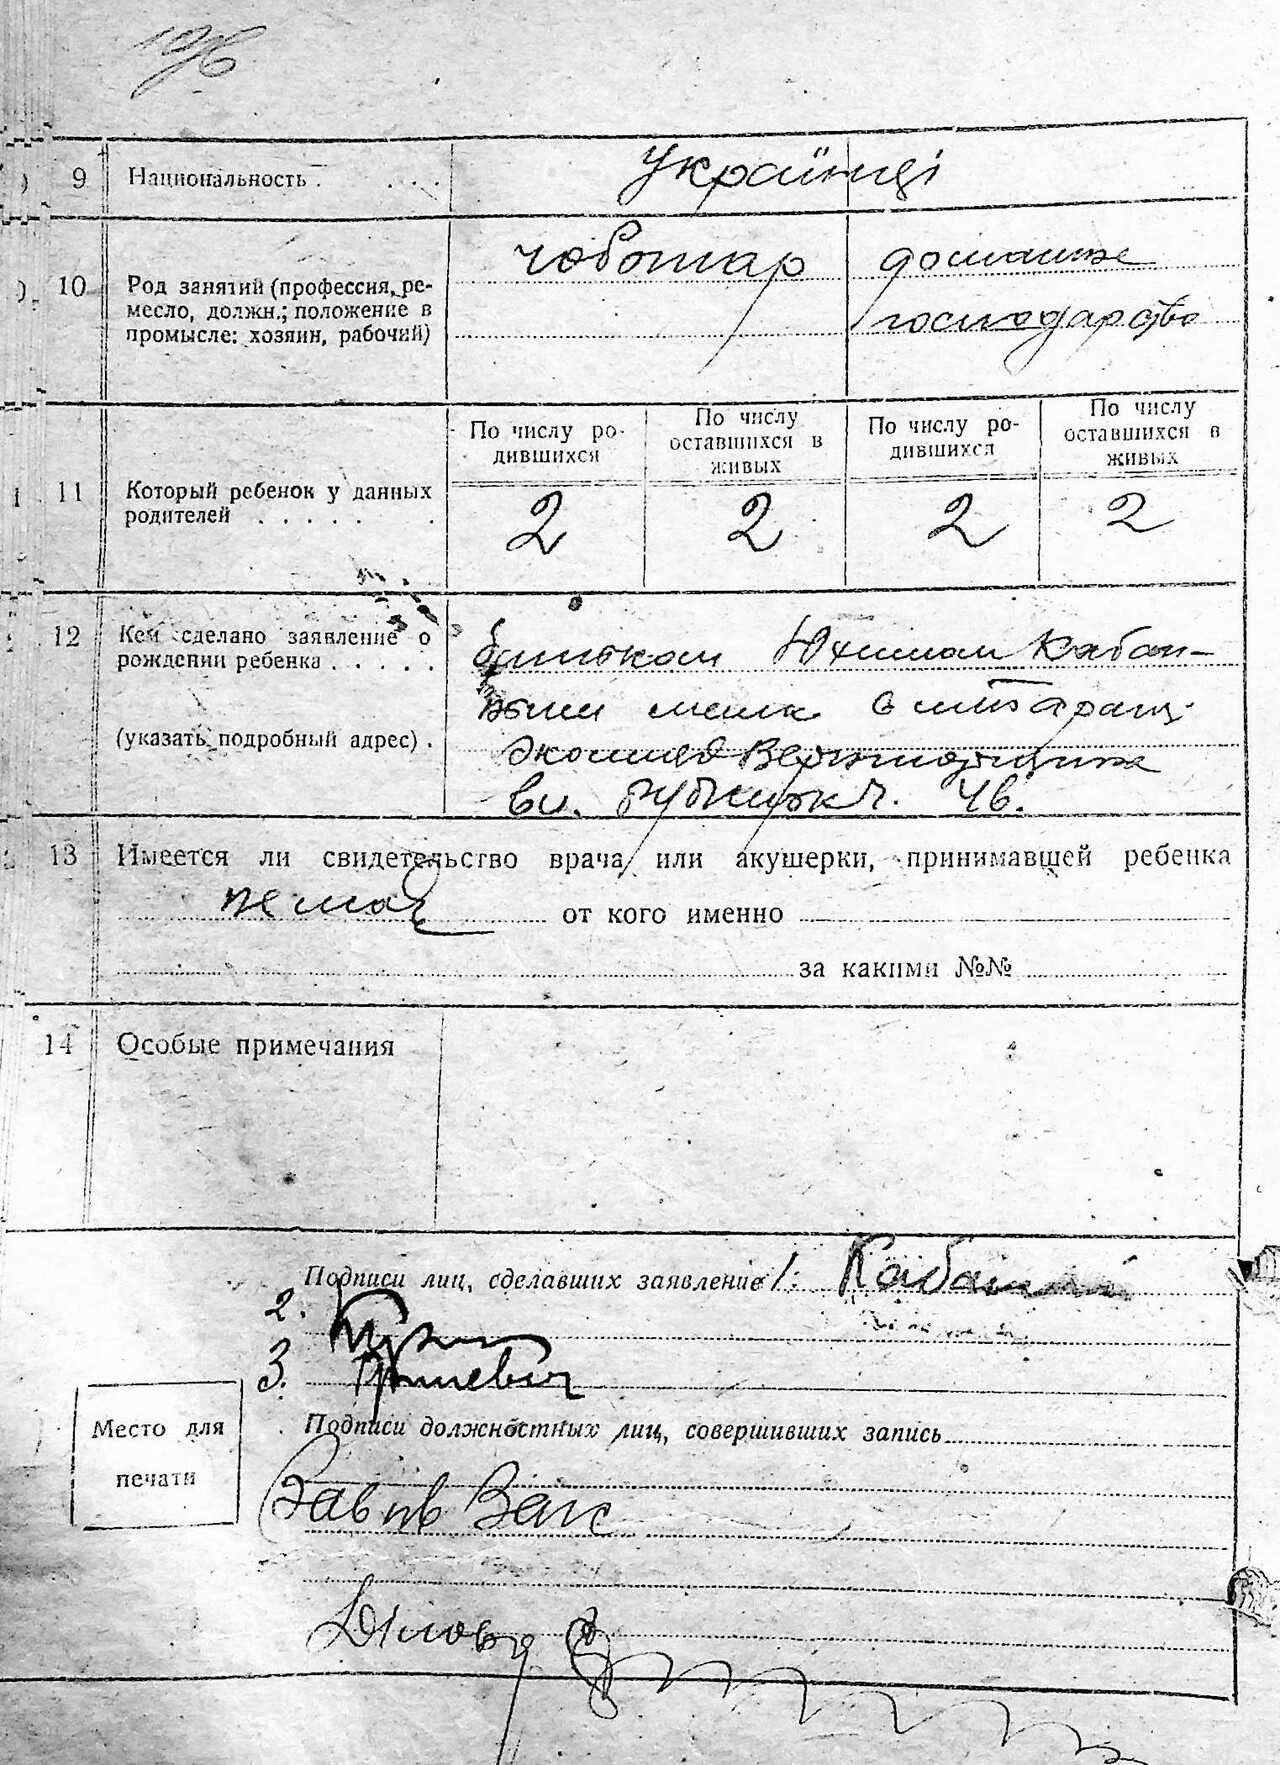 196
9 Национальность . . . . . Українці
10 Род занятий (профессия, ре-
месло, должн.; положение в
промысле: хозяин, рабочий)
чоботар
домашнє
господарство
11 Который ребенок у данных
родителей . . . . . .
По числу ро-
дившихся
По числу
оставшихся в
живых
По числу ро-
дившихся
По числу
оставшихся в
живых
2 2 2 2
12 Кем сделано заявление о
рождении ребенка . . . . .
(указать подробный адрес) .
батьком Юхимом Кабан-
мешк
вул. 4в.
13 Имеется ли свидетельство врача или акушерки, принимавшей ребенка
немає от кого именно
за какими №№
14 Особые примечания
Подписи лиц, сделавших заявление 1:
2.
3.
Место для
печати
Подписи должностных лиц, совершивших запись
Завів Загс
Діловод